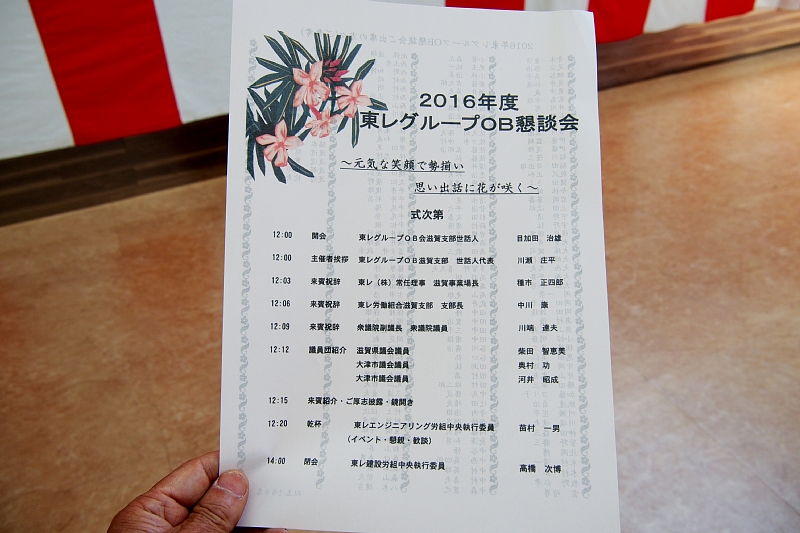 2016年度
東レグループOB懇談会
～元気な笑顔で勢揃い
思い出話に花が咲く～
式次第
12:00 開会 東レグループOB会滋賀支部世話人 目加田 治雄
12:00 主催者挨拶 東レグループOB滋賀支部 世話人代表 川瀬 庄平
12:03 来賓祝辞 東レ（株）常任理事 滋賀事業場長 種市 正四郎
12:06 来賓祝辞 東レ労働組合滋賀支部 支部長 中川 康
12:09 来賓祝辞 衆議院副議長 衆議院議員 川端 達夫
12:12 議員団紹介 滋賀県議会議員 柴田 智恵美
大津市議会議員 奥村 功
大津市議会議員 河井 昭成
12:15 来賓紹介・ご厚志披露・鏡開き
12:20 乾杯 東レエンジニアリング労組中央執行委員 苗村 一男
（イベント・懇親・歓談）
14:00 閉会 東レ建設労組中央執行委員 高橋 次博